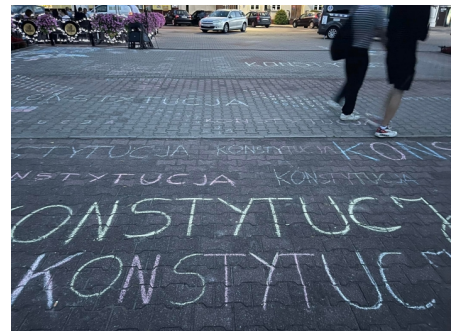 KONSTY
TUCJA
STYTUCJA KONSTYTUCJA KONS
NSTYTUCJA KONSTYTUCJA
KONSTYTUCJ
KONSTYTUC